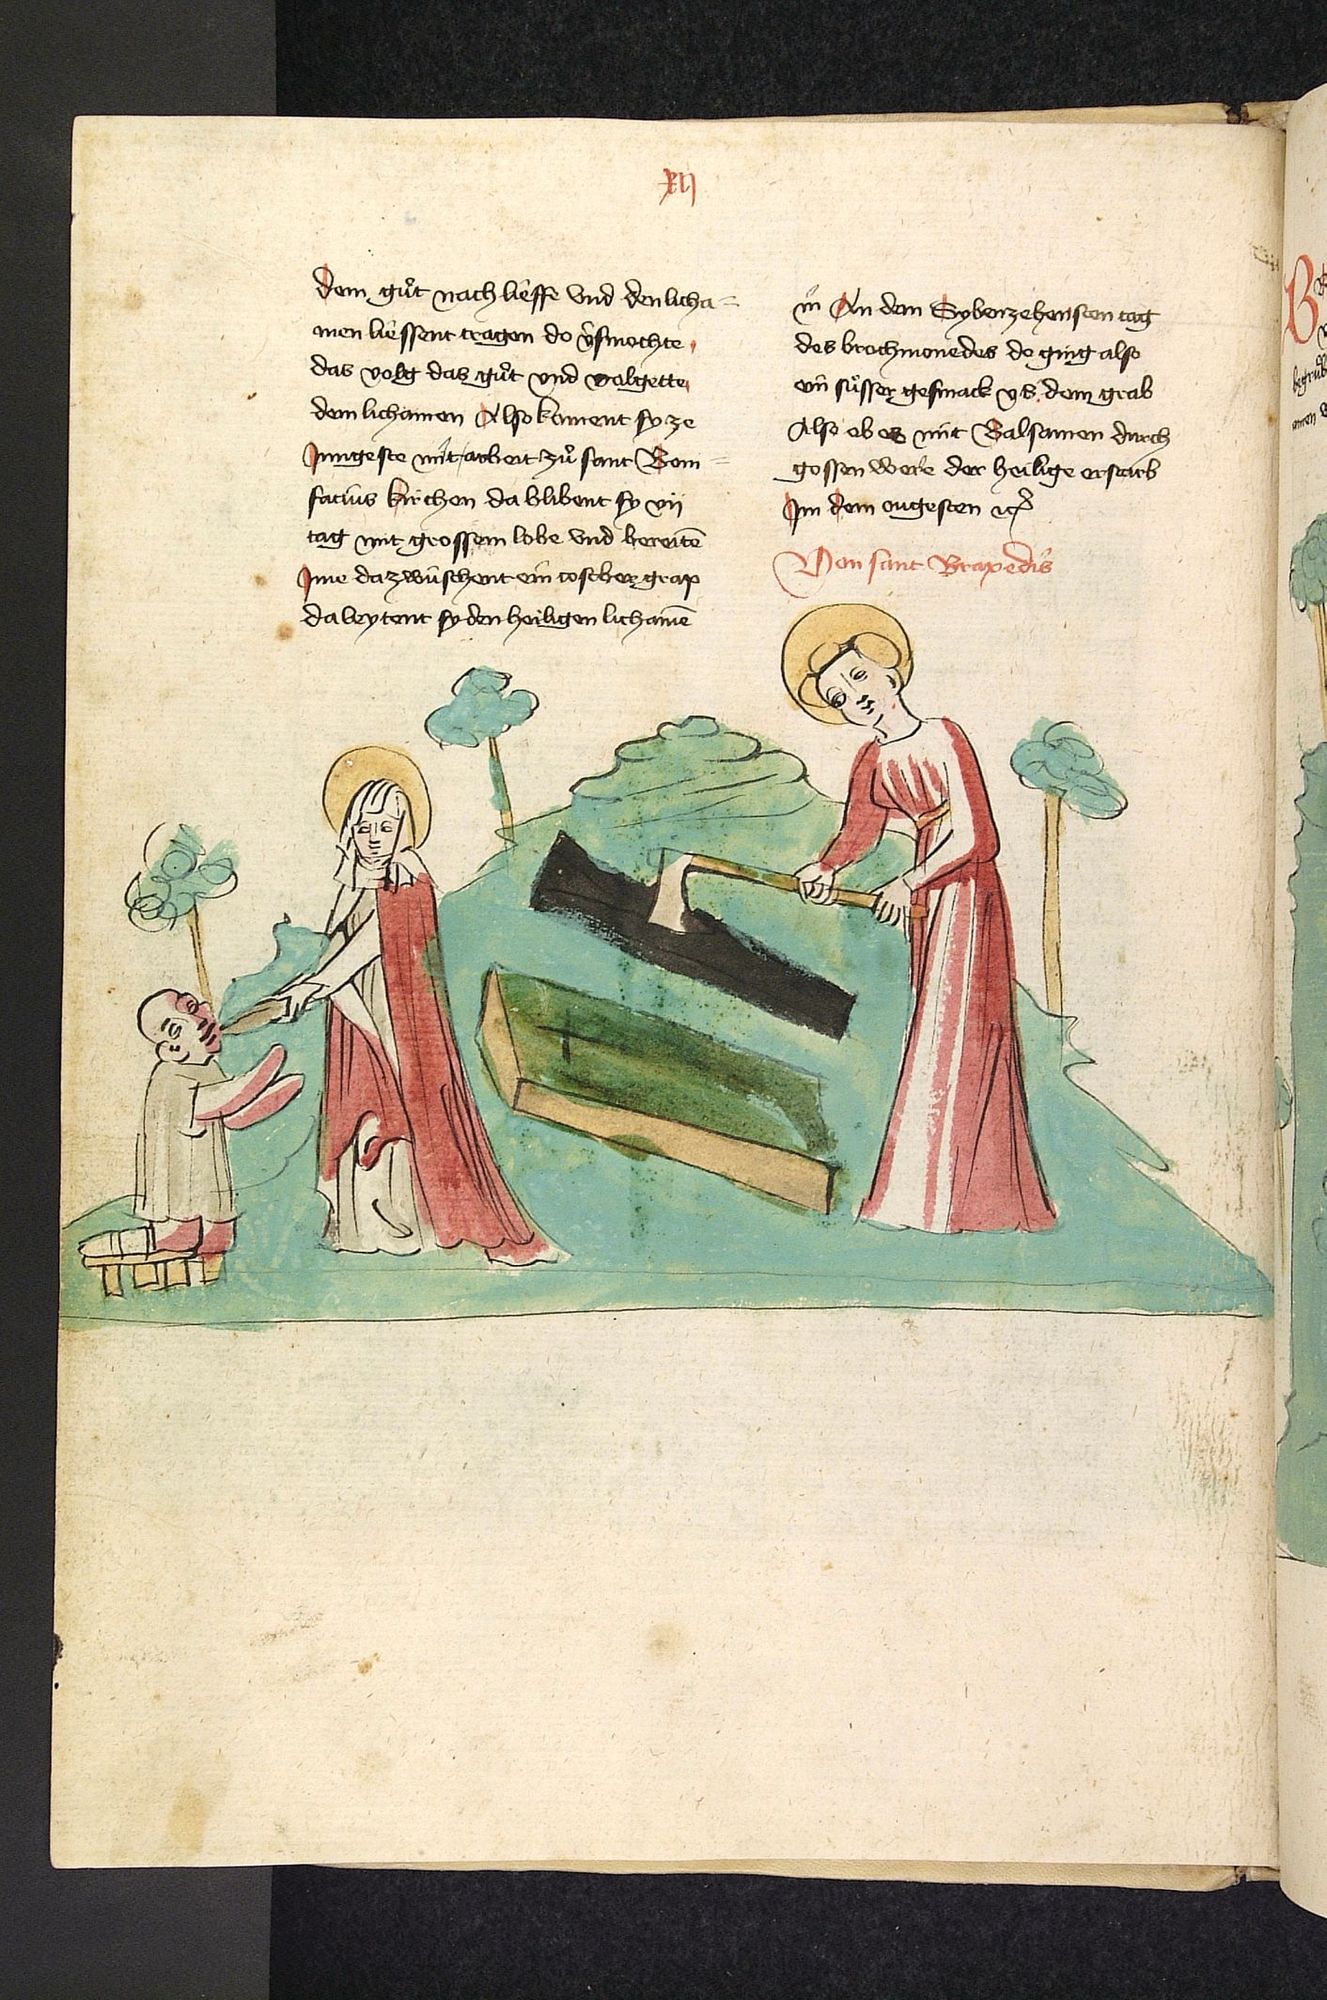 xij
dem guͦt nach lieffe vnd den licha=
men liessent tragen do v̾smochte
das volg das guͦt vnd volgette
dem lichamen Also koment sy ze
Jungeste mit arbeit zuͦ sant Boni=
facius kirchen da blibent sy vij
tag mit grossem lobe vnd bereitē
Jme dazwüschent ein costber grap
da leytent sy den heiligen lichamē
in An dem Sybenzehensten tag
des brochmonedes do ging also
ein suͤsser gesmack vs dem grab
Also ob es mit Balsamen durch
gossen were der heilige erstarb
Jm dem ougesten
Von sant Braxedis